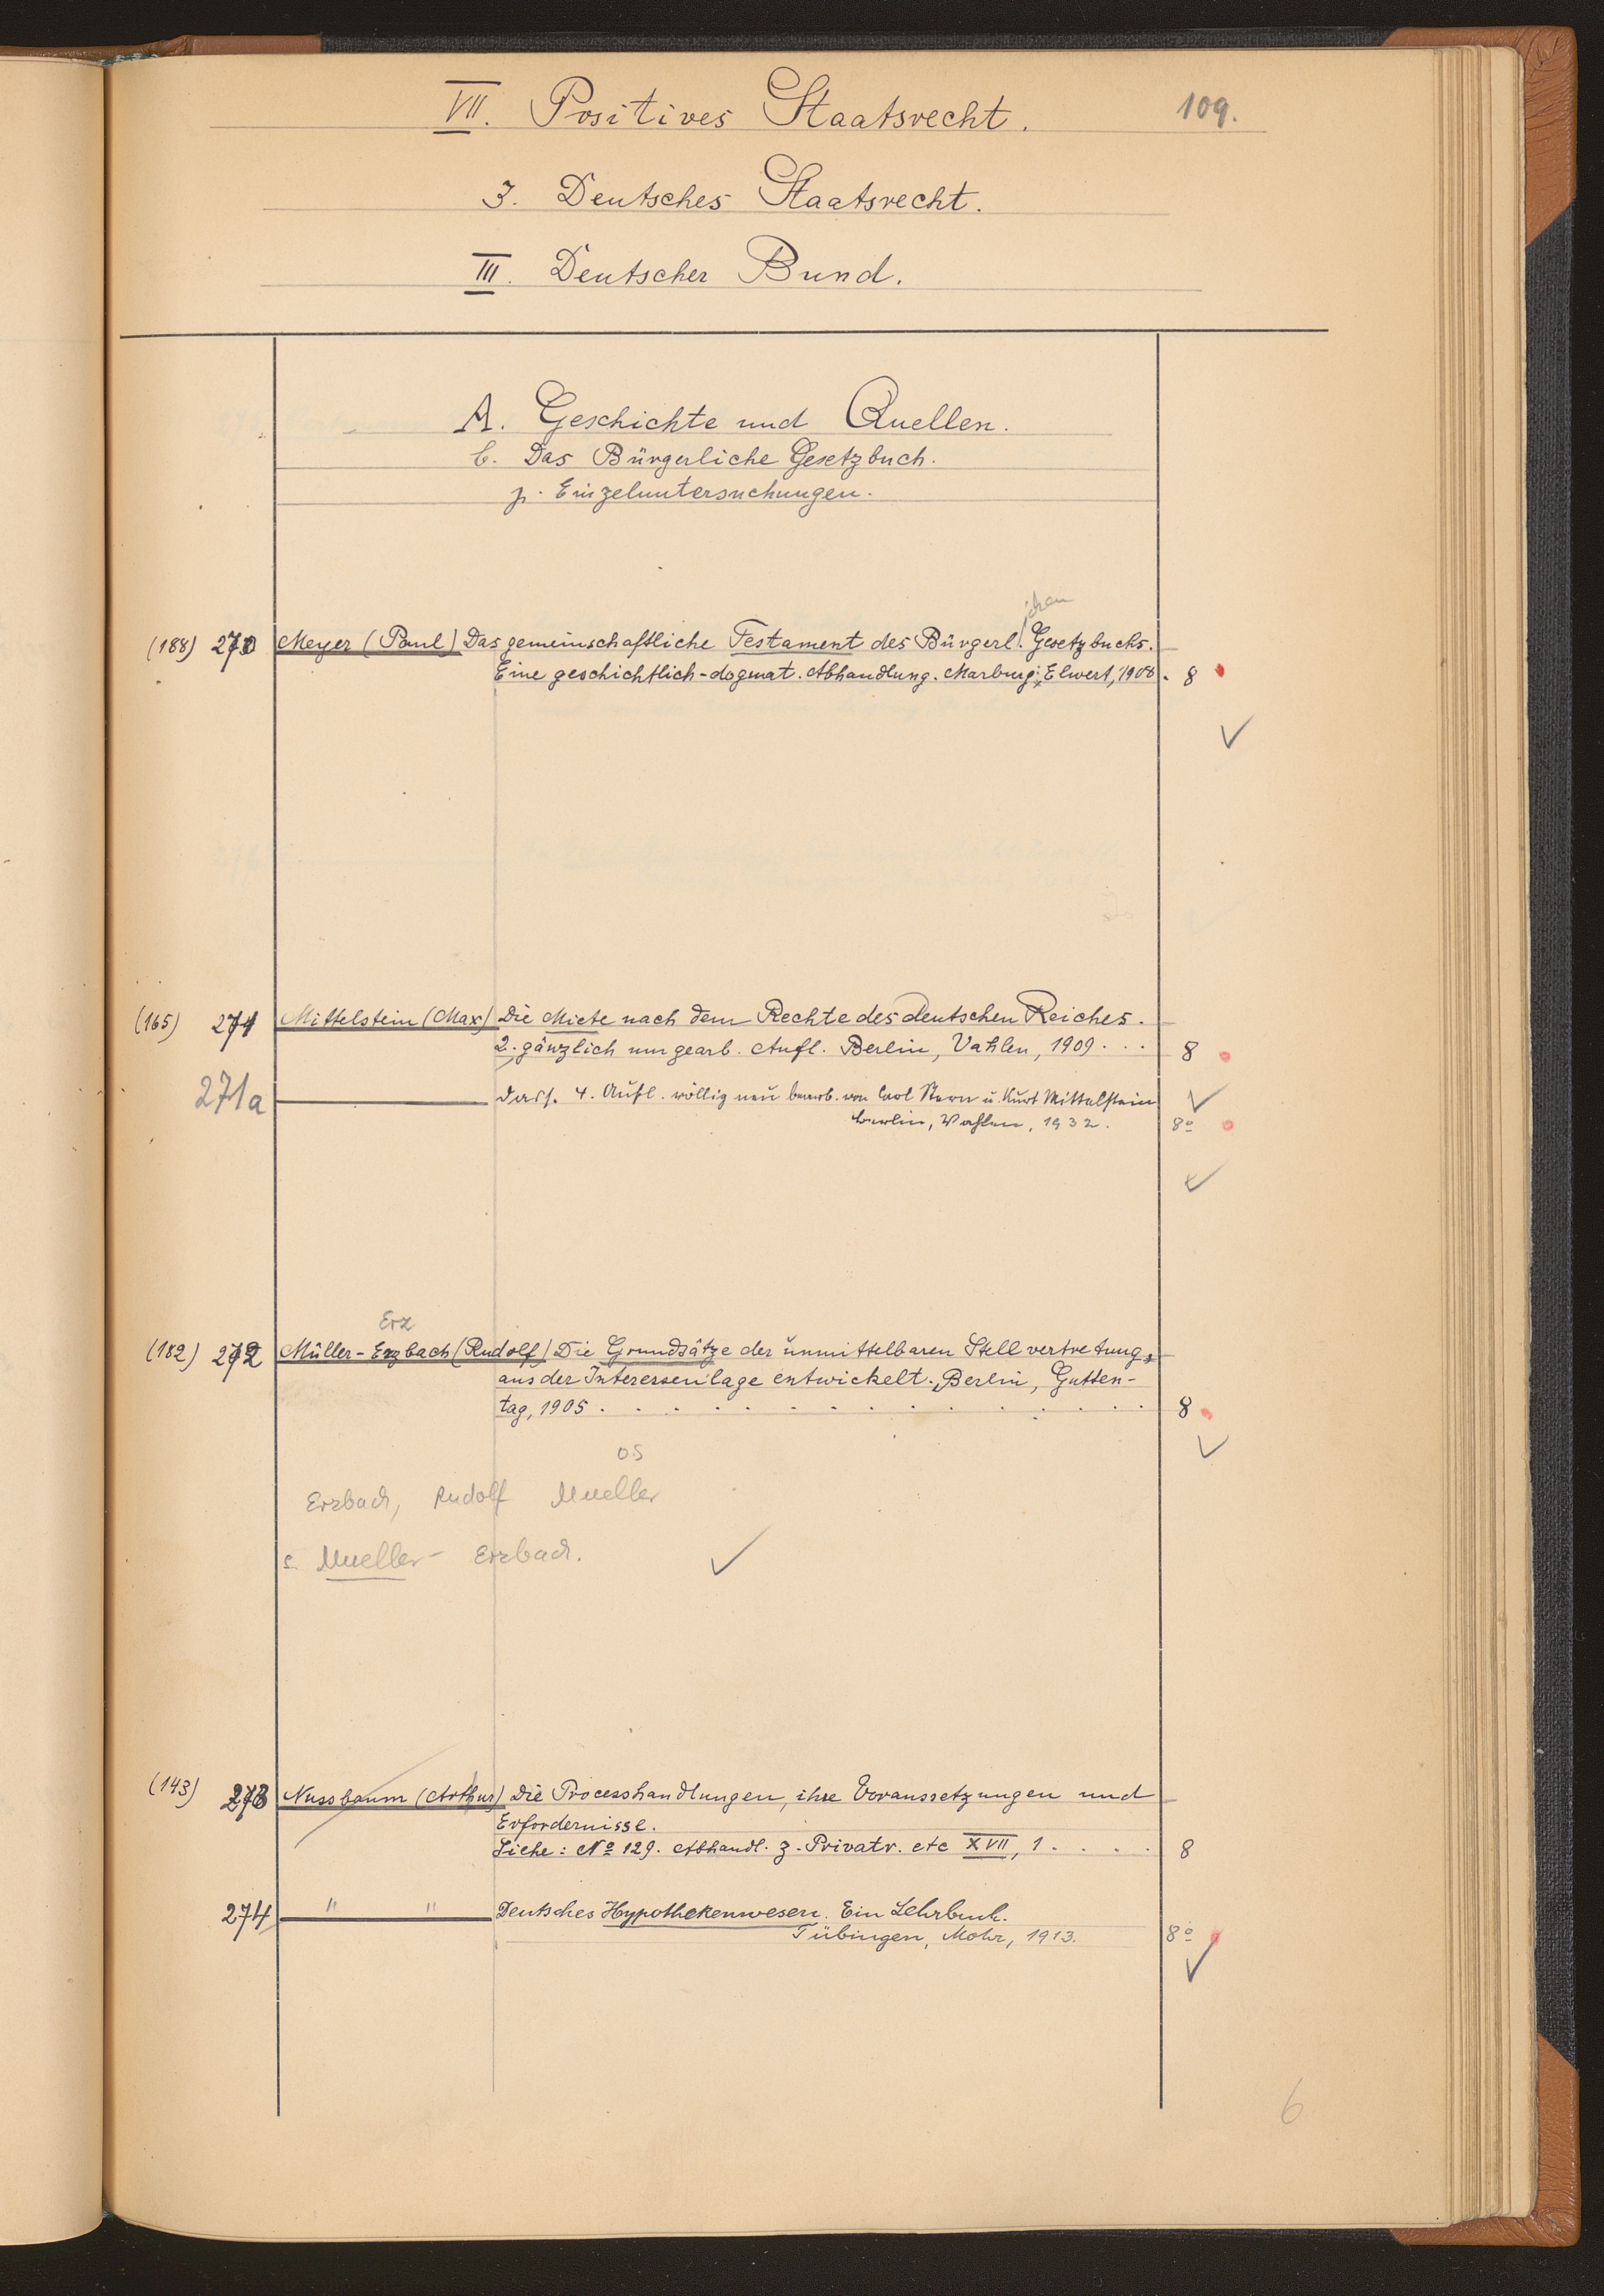 VII. Positives Staatsrecht. 109.
3. Deutsches Staatsrecht.
III. Deutscher Bund.
A. Geschichte und Quellen.
b. Das Bürgerliche Gesetzbuch.
γ. Einzeluntersuchungen.
ichen
(188) 270 Meyer (Paul) Das gemeinschaftliche Testament des Bürgerl. Gesetzbuchs.
Eine geschichtlich-dogmat. Abhandlung. Marburg, Elwert, 1908. 8
(165) 271 Mittelstein (Max) Die Miete nach dem Rechte des deutschen Reiches.
2. gänzlich umgearb. Aufl. Berlin, Vahlen, 1909 . . . 8
271a dass. 4. Aufl. völlig neu bearb. von Carl Stern u. Kurt Mittelstein
Berlin, Vahlen, 1932. 8º
Erz
(182) 272 Müller-Erzbach (Rudolf) Die Grundsätze der unmittelbaren Stellvertretung,
aus der Interessenlage entwickelt. Berlin, Gutten-
tag, 1905 . . . . . . . . . . . . . . 8
05
Erzbach, Rudolf Mueller
s. Mueller-Erzbach.
(143) 273 Nussbaum (Arthur) Die Processhandlungen, ihre Voraussetzungen und
Erfordernisse.
Siehe: Nº 129. Abhandl. z. Privatr. etc XVII, 1 . . . . 8
274 " " Deutsches Hypothekenwesen. Ein Lehrbuch.
Tübingen, Mohr, 1913. 8º
6